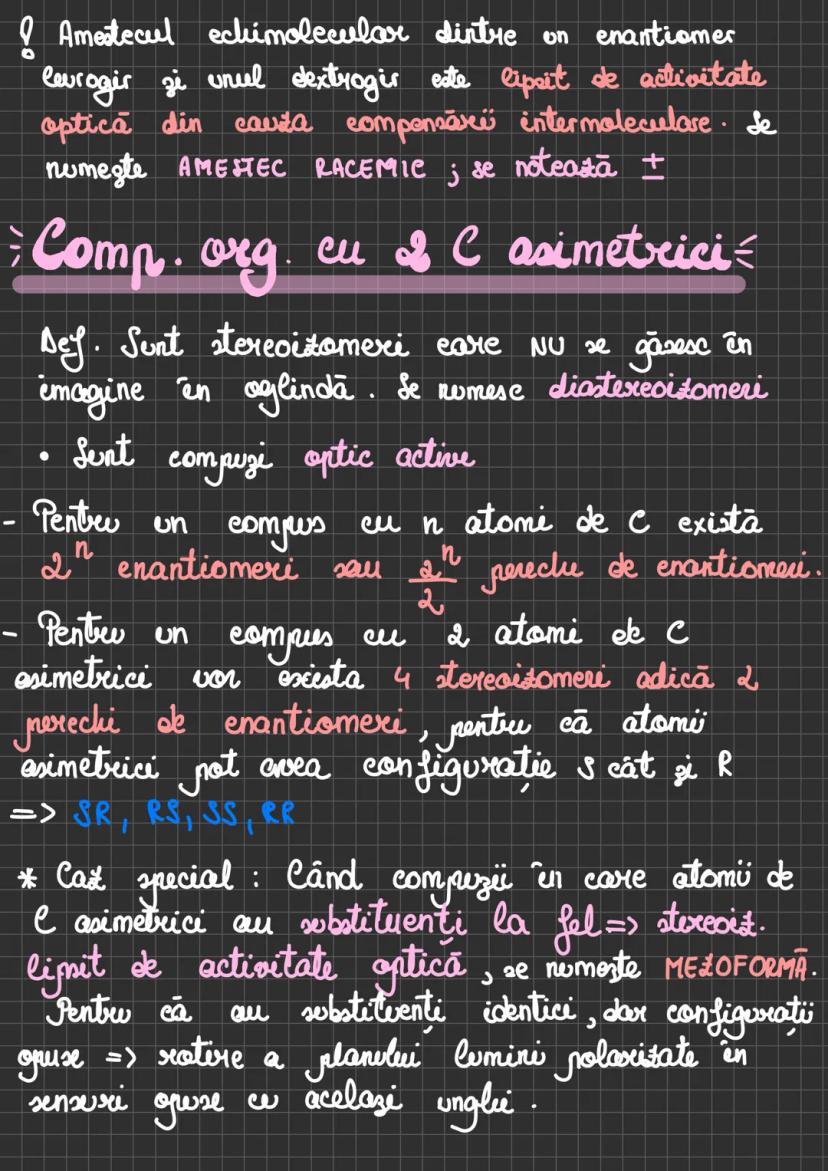 ! Amestecul echimolecular dintre un enantiomer
levogir și unul dextrogir este lipsit de activitate
optică din cauza compensării intermoleculare. Se
numește AMESTEC RACEMIC ; se notează ±
Comp. org. cu 2 C asimetrici
Def. Sunt stereoizomeri care NU se găsesc în
imagine în oglindă. Se numesc diastereoizomeri
• Sunt compuși optic active
- Pentru un compus cu n atomi de C există
2ⁿ enantiomeri sau 2ⁿ/2 perechi de enantiomeri.
- Pentru un compus cu 2 atomi de C
asimetrici vor exista 4 stereoizomeri adică 2
perechi de enantiomeri, pentru că atomii
asimetrici pot avea configurație S cât și R
=> SR, RS, SS, RR
* Caz special : Când compuzii în care atomii de
C asimetrici au substituenți la fel => stereoiz.
lipsit de activitate optică, se numește MEZOFORMĂ.
Pentru că au substituenți identici, dar configurații
opuse => rotire a planului lumini polarizate în
sensuri opuse cu același unghi.